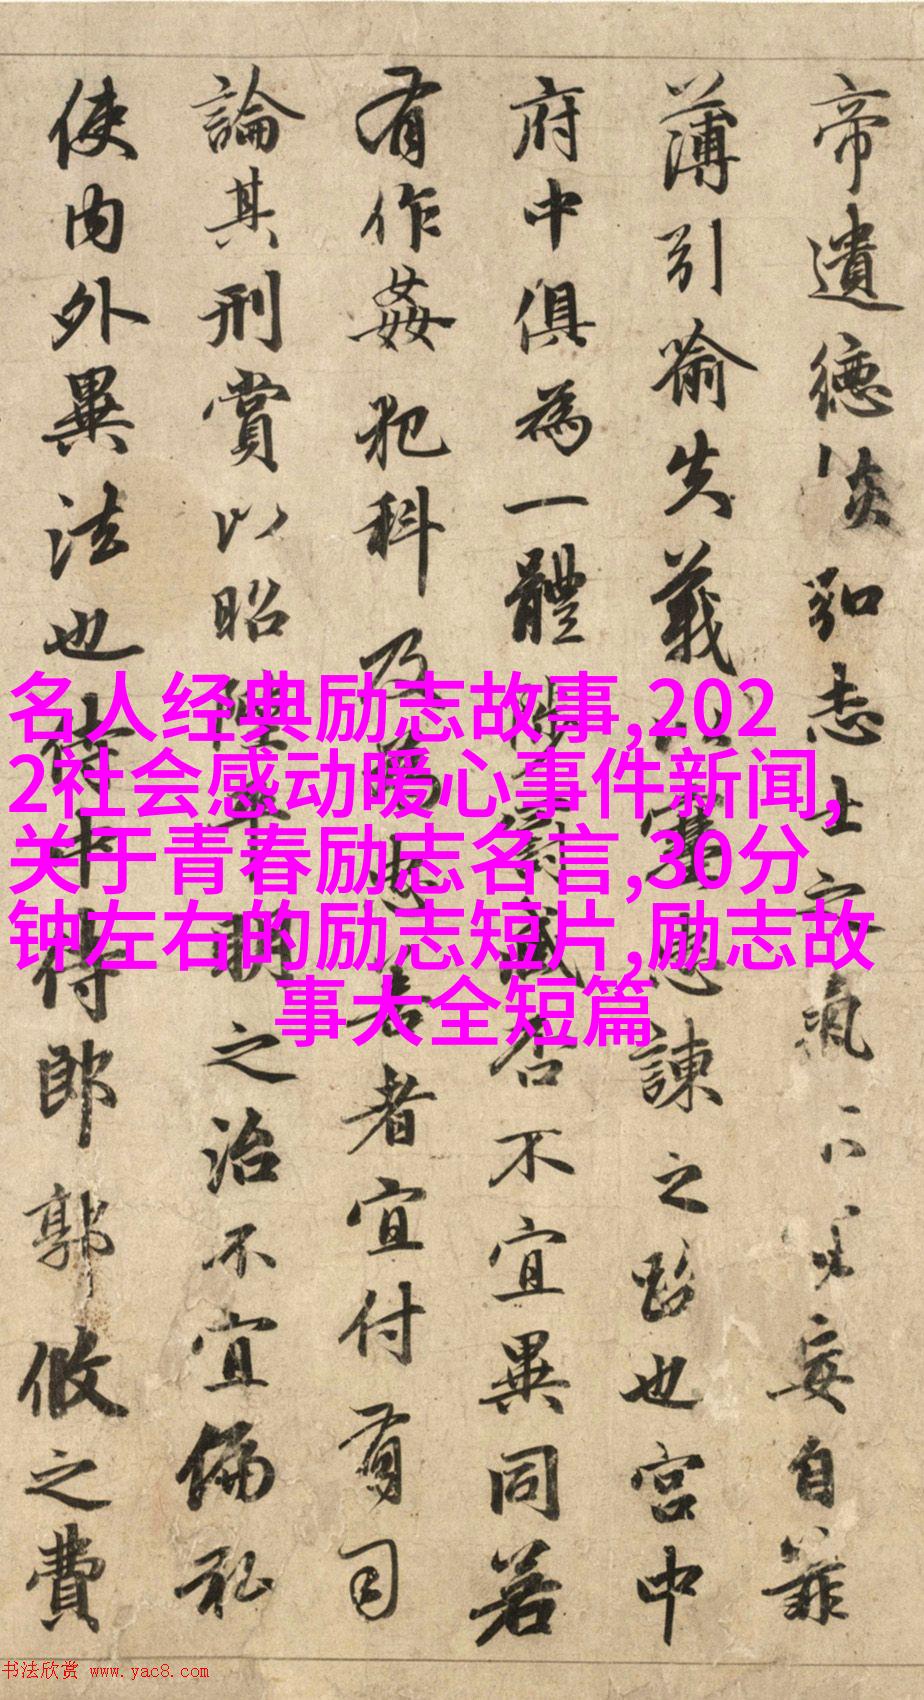 帝遺德恢弘志士之氣不宜妄自菲
薄引喻失義以塞忠諫之路也宮中
府中俱為一體陟罰臧否不宜異同若
有作姦犯科及為忠善者宜付有司
論其刑賞以昭陛下平明之治不宜偏私
使內外異法也侍中侍郎郭攸之費
名人经典励志故事,202
2社会感动暖心事件新闻,
关于青春励志名言,30分
钟左右的励志短片,励志故
事大全短篇
书法欣赏 www.yac8.com